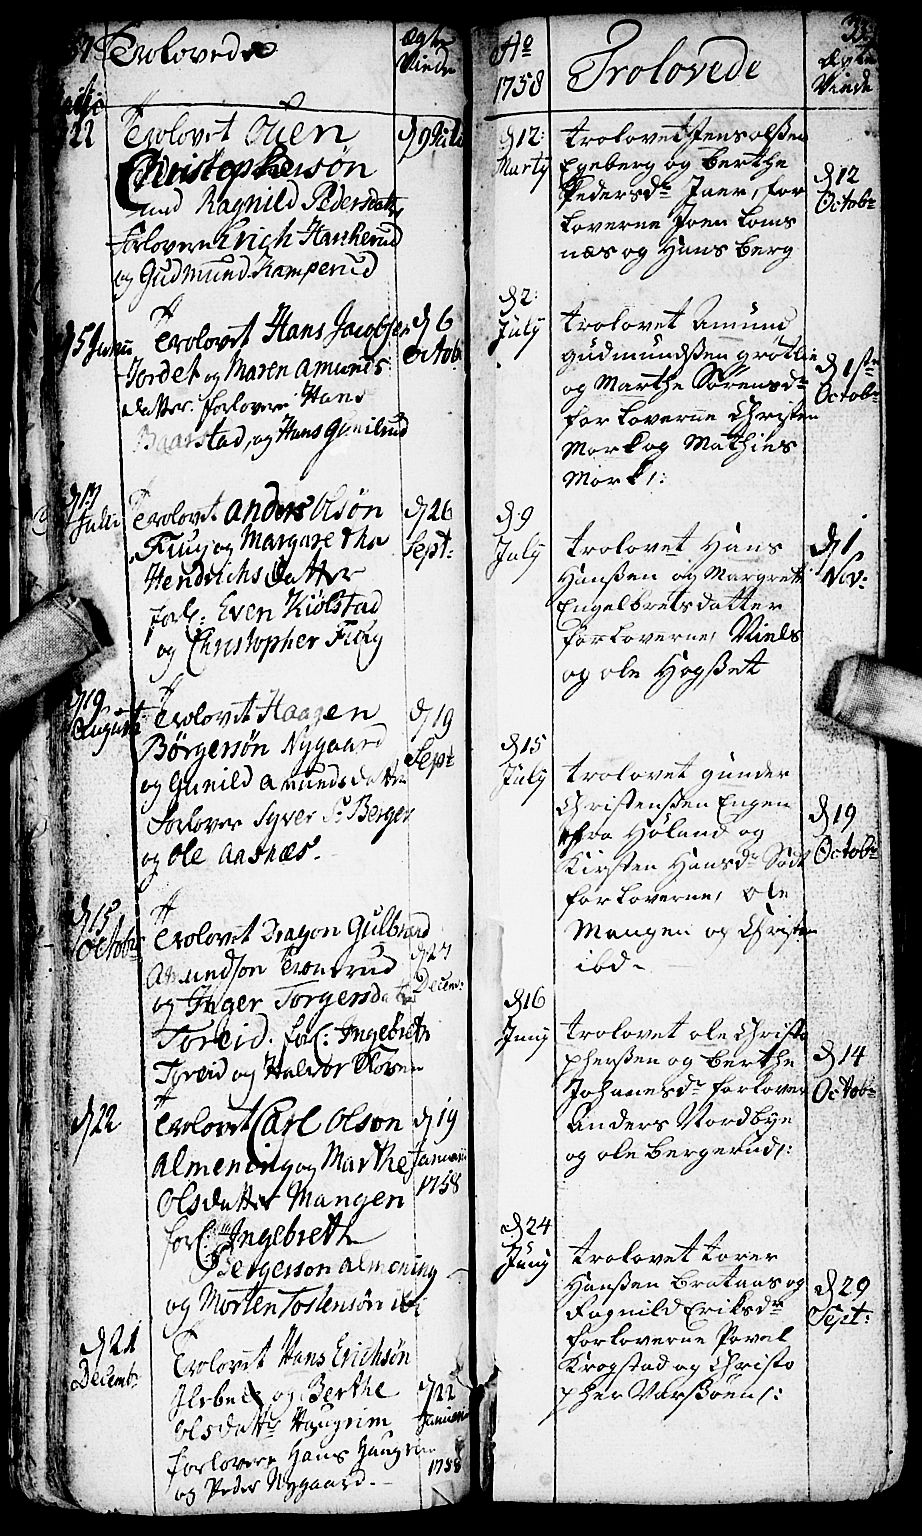 Trolovede
ægte
Viede
22
Trolovet Ouen
Christophersøn
und Ragnild Pedersdatter
forlovere Erich Haneherud
og Gudmund Kamperud
d 9 Julii
d 5 Junii
Trolovet Hans Jacobsen
Jordet og Maren Amunds
datter. forlovere Hans
Baarstad, og Hans Gunilrud
d 6
octob
d 17
Julii
Trolovet Anders Olsøn
Fiuug og Margaretha
Hendrichs datter
forl: Even Kiølstad
og Christopher Fiuug
d 26
Sept:
d 19
Augusti
Trolovet Haagen
Børgersøn Nygaard
og Gunild Amundsdatter
forlover Syver P: Berger
og Ole Aasnæs.
d 19
Sept:
d 15
Octobr
Trolovet Dragon Gulbrand
Amundson
og Inger Torgersdatter
Toreid. forl: Ingebreth
Toreid og Halvor Kloven
d 27
Decem:
d 22
Trolovet Carl Olson
Almening og Marthe
Olsdatter Mangen
forl: Ingebreth
Bergerson Almening
og Morten Tostensøn ibd
d 19
Januarii
1758
d 21
Decemb:
Trolovet Hans Erichsøn
og Berthe
Olsdatter Haugrim
forlovere Hans Haugrim
og Peder Nygaard.
d 22
Januarii
1758
Ao
1758
Trolovede
ægte
Viede
d 12:
Marty
trolovet Jens olssen
Egeberg og berthe
Pedersdr Jaer, for
loverne Joen Toms
næs og Hans berg
d 12
Octobr
d 2:
July
trolovet Amund
gudmundssen grøtlie
og Marthe Sørensdr
forloverne Christen
Mork og Mathies
Mork/:
d 1ste
Octobr
d 9
July
trolovet Hans
Hanssen og Margrete
Engelbretsdatter
forloverne, Niels
og ole Hogsset
d 1
Nov:
d 15
July
trolovet gunder
Christenssen Engen
fra Høland og
Kirsten Hansdr
forloverne, ole
Mangen og Christen
ibd.
d 19
Octobr
d 16
Juny
trolovet ole Christo
pherssen og berthe
Johanesdr forlover
Anders Nordbye
og ole bergerud/:
d 14
Octobr
d 24
Juny
trolovet torer
Hanssen brataas og
Ragnild Eriksdr
forloverne Povel
Krogstad og Christo
pher Varssøen/:
d 29
Sept: